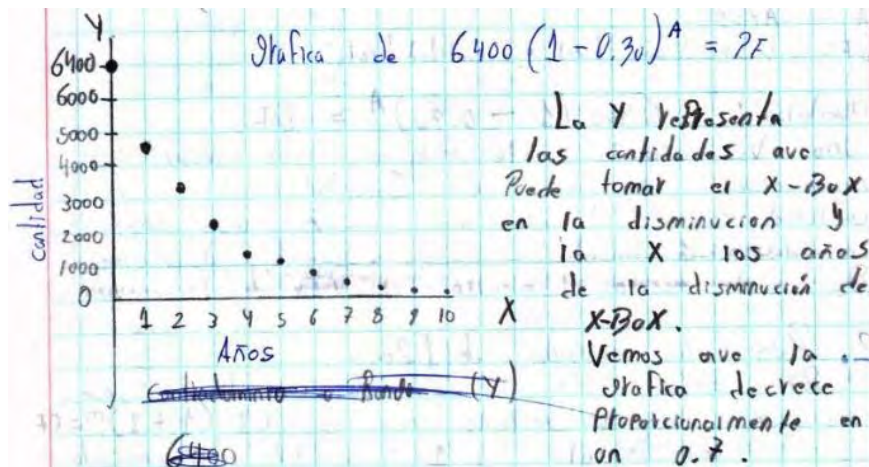 Y
Grafica de 6400 (1 - 0.30)^A = PF
6400
6000
5000
4000
3000
2000
1000
0
cantidad
1 2 3 4 5 6 7 8 9 10 X
Años
La Y representa
las cantidades que
Puede tomar el X-BoX
en la disminucion y
la X los años
de la disminución de
X-BoX.
Vemos que la
Grafica decrece
Proporcionalmente en
un 0.7.
(Y)